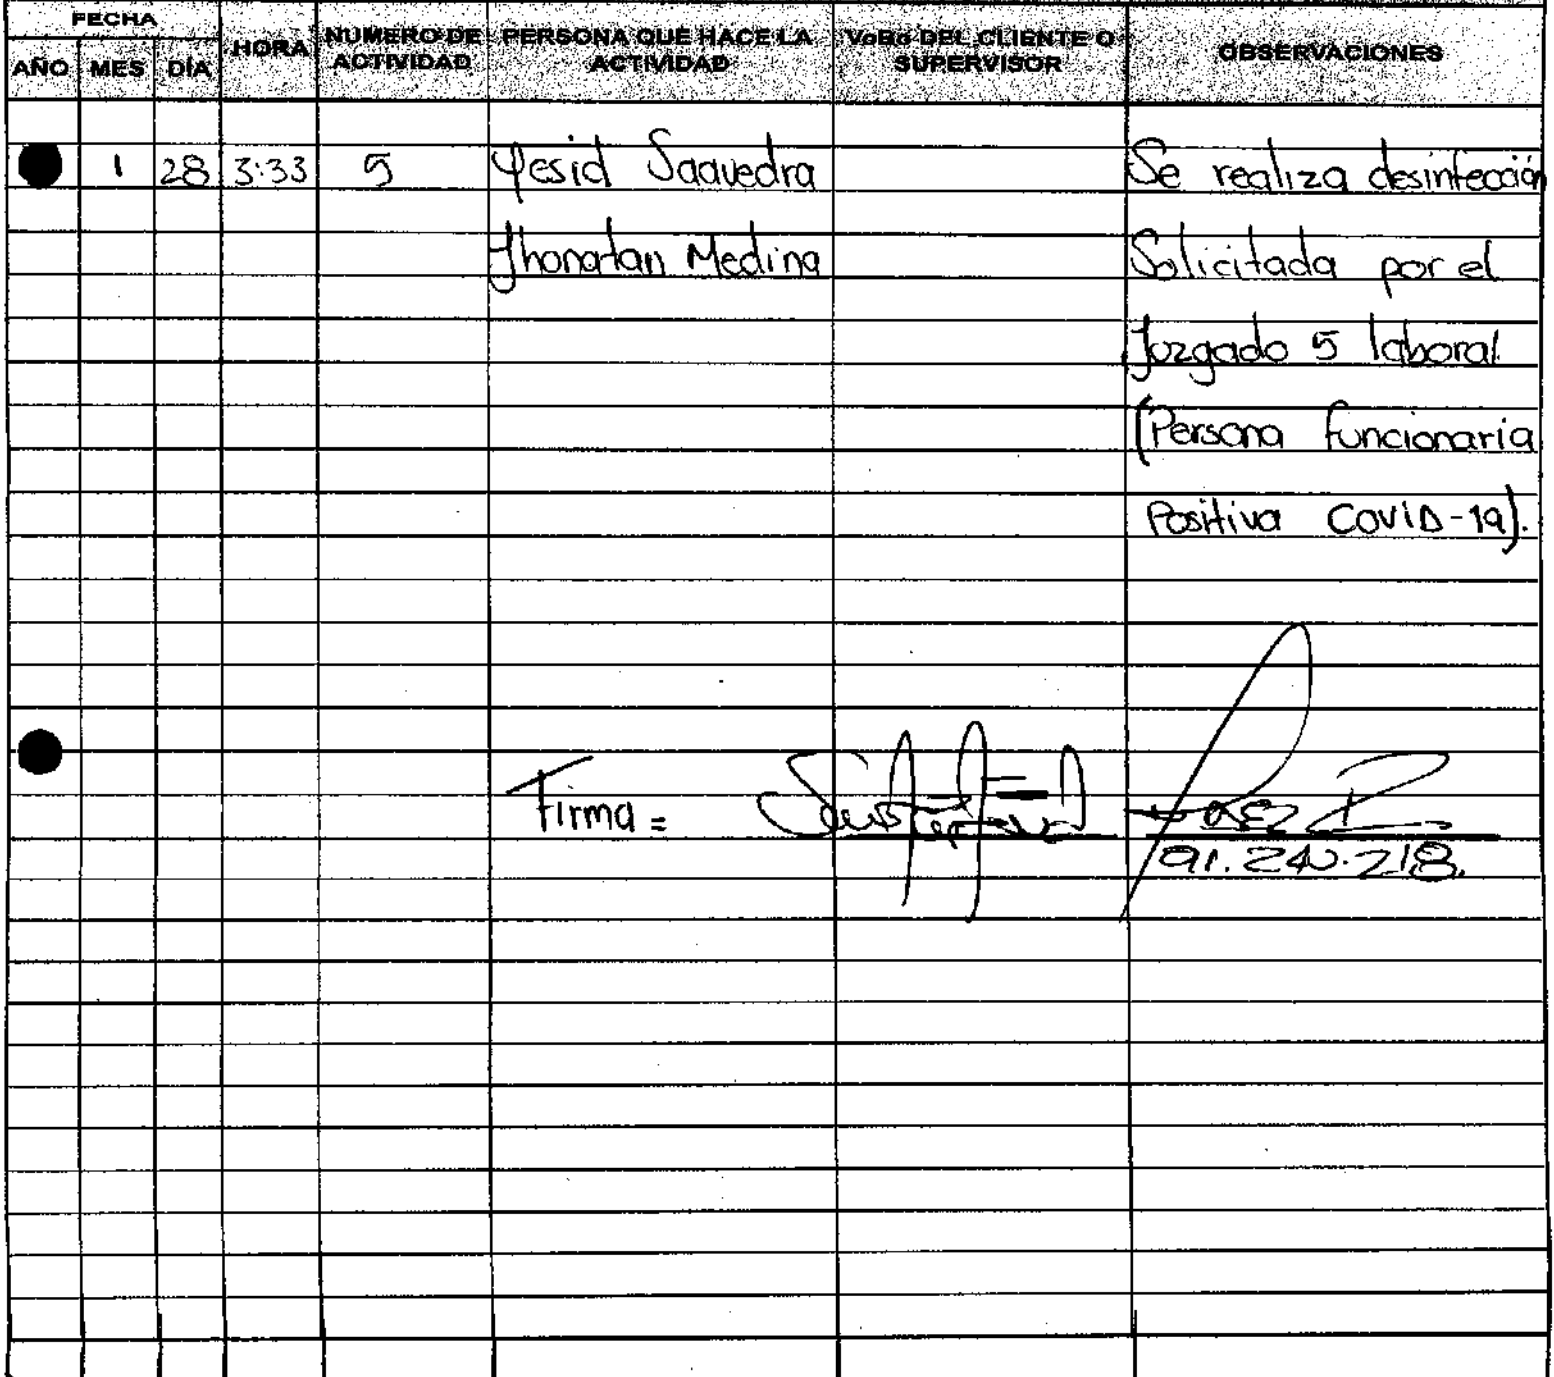 FECHA
AÑO MES DÍA HORA NUMERO DE ACTIVIDAD PERSONA QUE HACE LA ACTIVIDAD VoBo DEL CLIENTE O SUPERVISOR OBSERVACIONES
1 28 3:33 5 Yesid Saavedra Se realiza desinfección
Jhonatan Medina Solicitada por el
Juzgado 5 laboral
(Persona funcionaria
Positiva COVID-19).
Firma =
91.240.218.